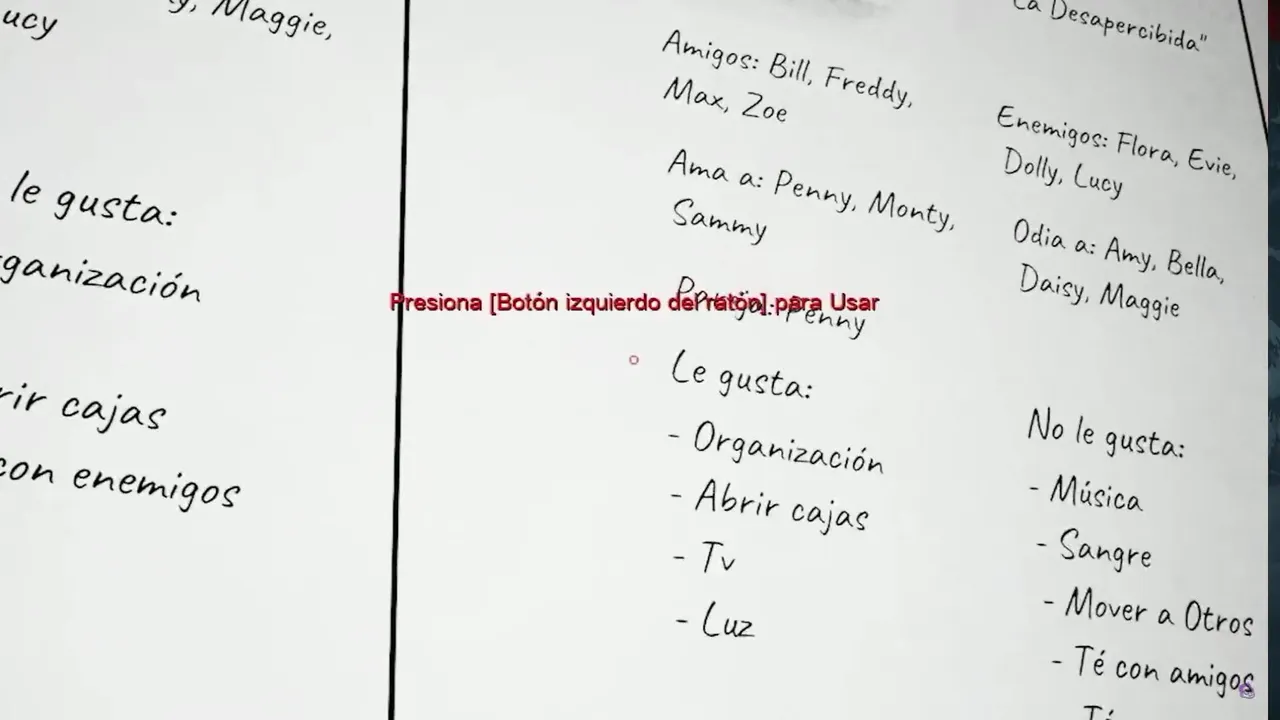 ucy
Maggie,
le gusta:
cajas
con enemigos
La Desapercibida"
Amigos: Bill, Freddy,
Max, Zoe
Ama a: Penny, Monty,
Sammy
Pareja: Penny
Presiona [Botón izquierdo del ratón] para Usar
Le gusta:
- Organización
- Abrir cajas
- Tv
- Luz
Enemigos: Flora, Evie,
Dolly, Lucy
Odia a: Amy, Bella,
Daisy, Maggie
No le gusta:
- Música
- Sangre
- Mover a Otros
- Té con amigos